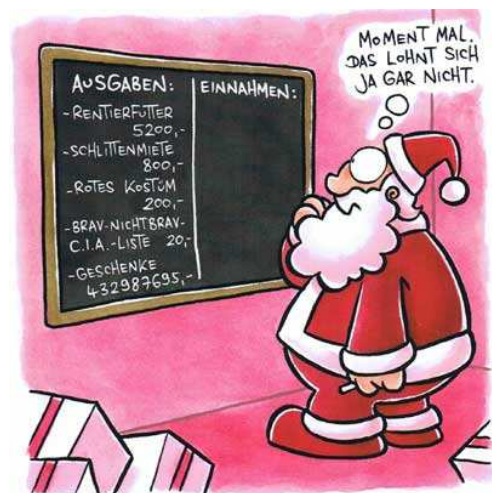 MOMENT MAL.
DAS LOHNT SICH
JA GAR NICHT.
AUSGABEN:
-RENTIERFUTTER
5200,-
-SCHLITTENMIETE
800,-
-ROTES KOSTÜM
200,-
-BRAV-NICHTBRAV-
C.I.A.-LISTE 20,-
-GESCHENKE
432987695,-
EINNAHMEN: